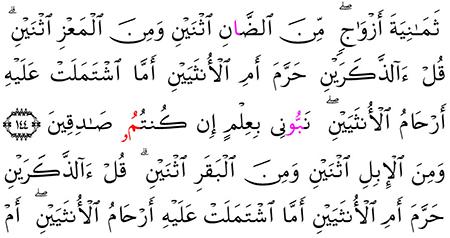 ثَمَٰنِيَةَ أَزْوَٰجٍۖ مِّنَ ٱلضَّانِ ٱثْنَيْنِ وَمِنَ ٱلْمَعْزِ ٱثْنَيْنِۗ
قُلْ ءَآلذَّكَرَيْنِ حَرَّمَ أَمِ ٱلْأُنثَيَيْنِ أَمَّا ٱشْتَمَلَتْ عَلَيْهِ
أَرْحَامُ ٱلْأُنثَيَيْنِۖ نَبُّونِى بِعِلْمٍ إِن كُنتُمُۥ صَٰدِقِينَ ١٤٤
وَمِنَ ٱلْإِبِلِ ٱثْنَيْنِ وَمِنَ ٱلْبَقَرِ ٱثْنَيْنِۗ قُلْ ءَآلذَّكَرَيْنِ
حَرَّمَ أَمِ ٱلْأُنثَيَيْنِ أَمَّا ٱشْتَمَلَتْ عَلَيْهِ أَرْحَامُ ٱلْأُنثَيَيْنِۖ أَمْ